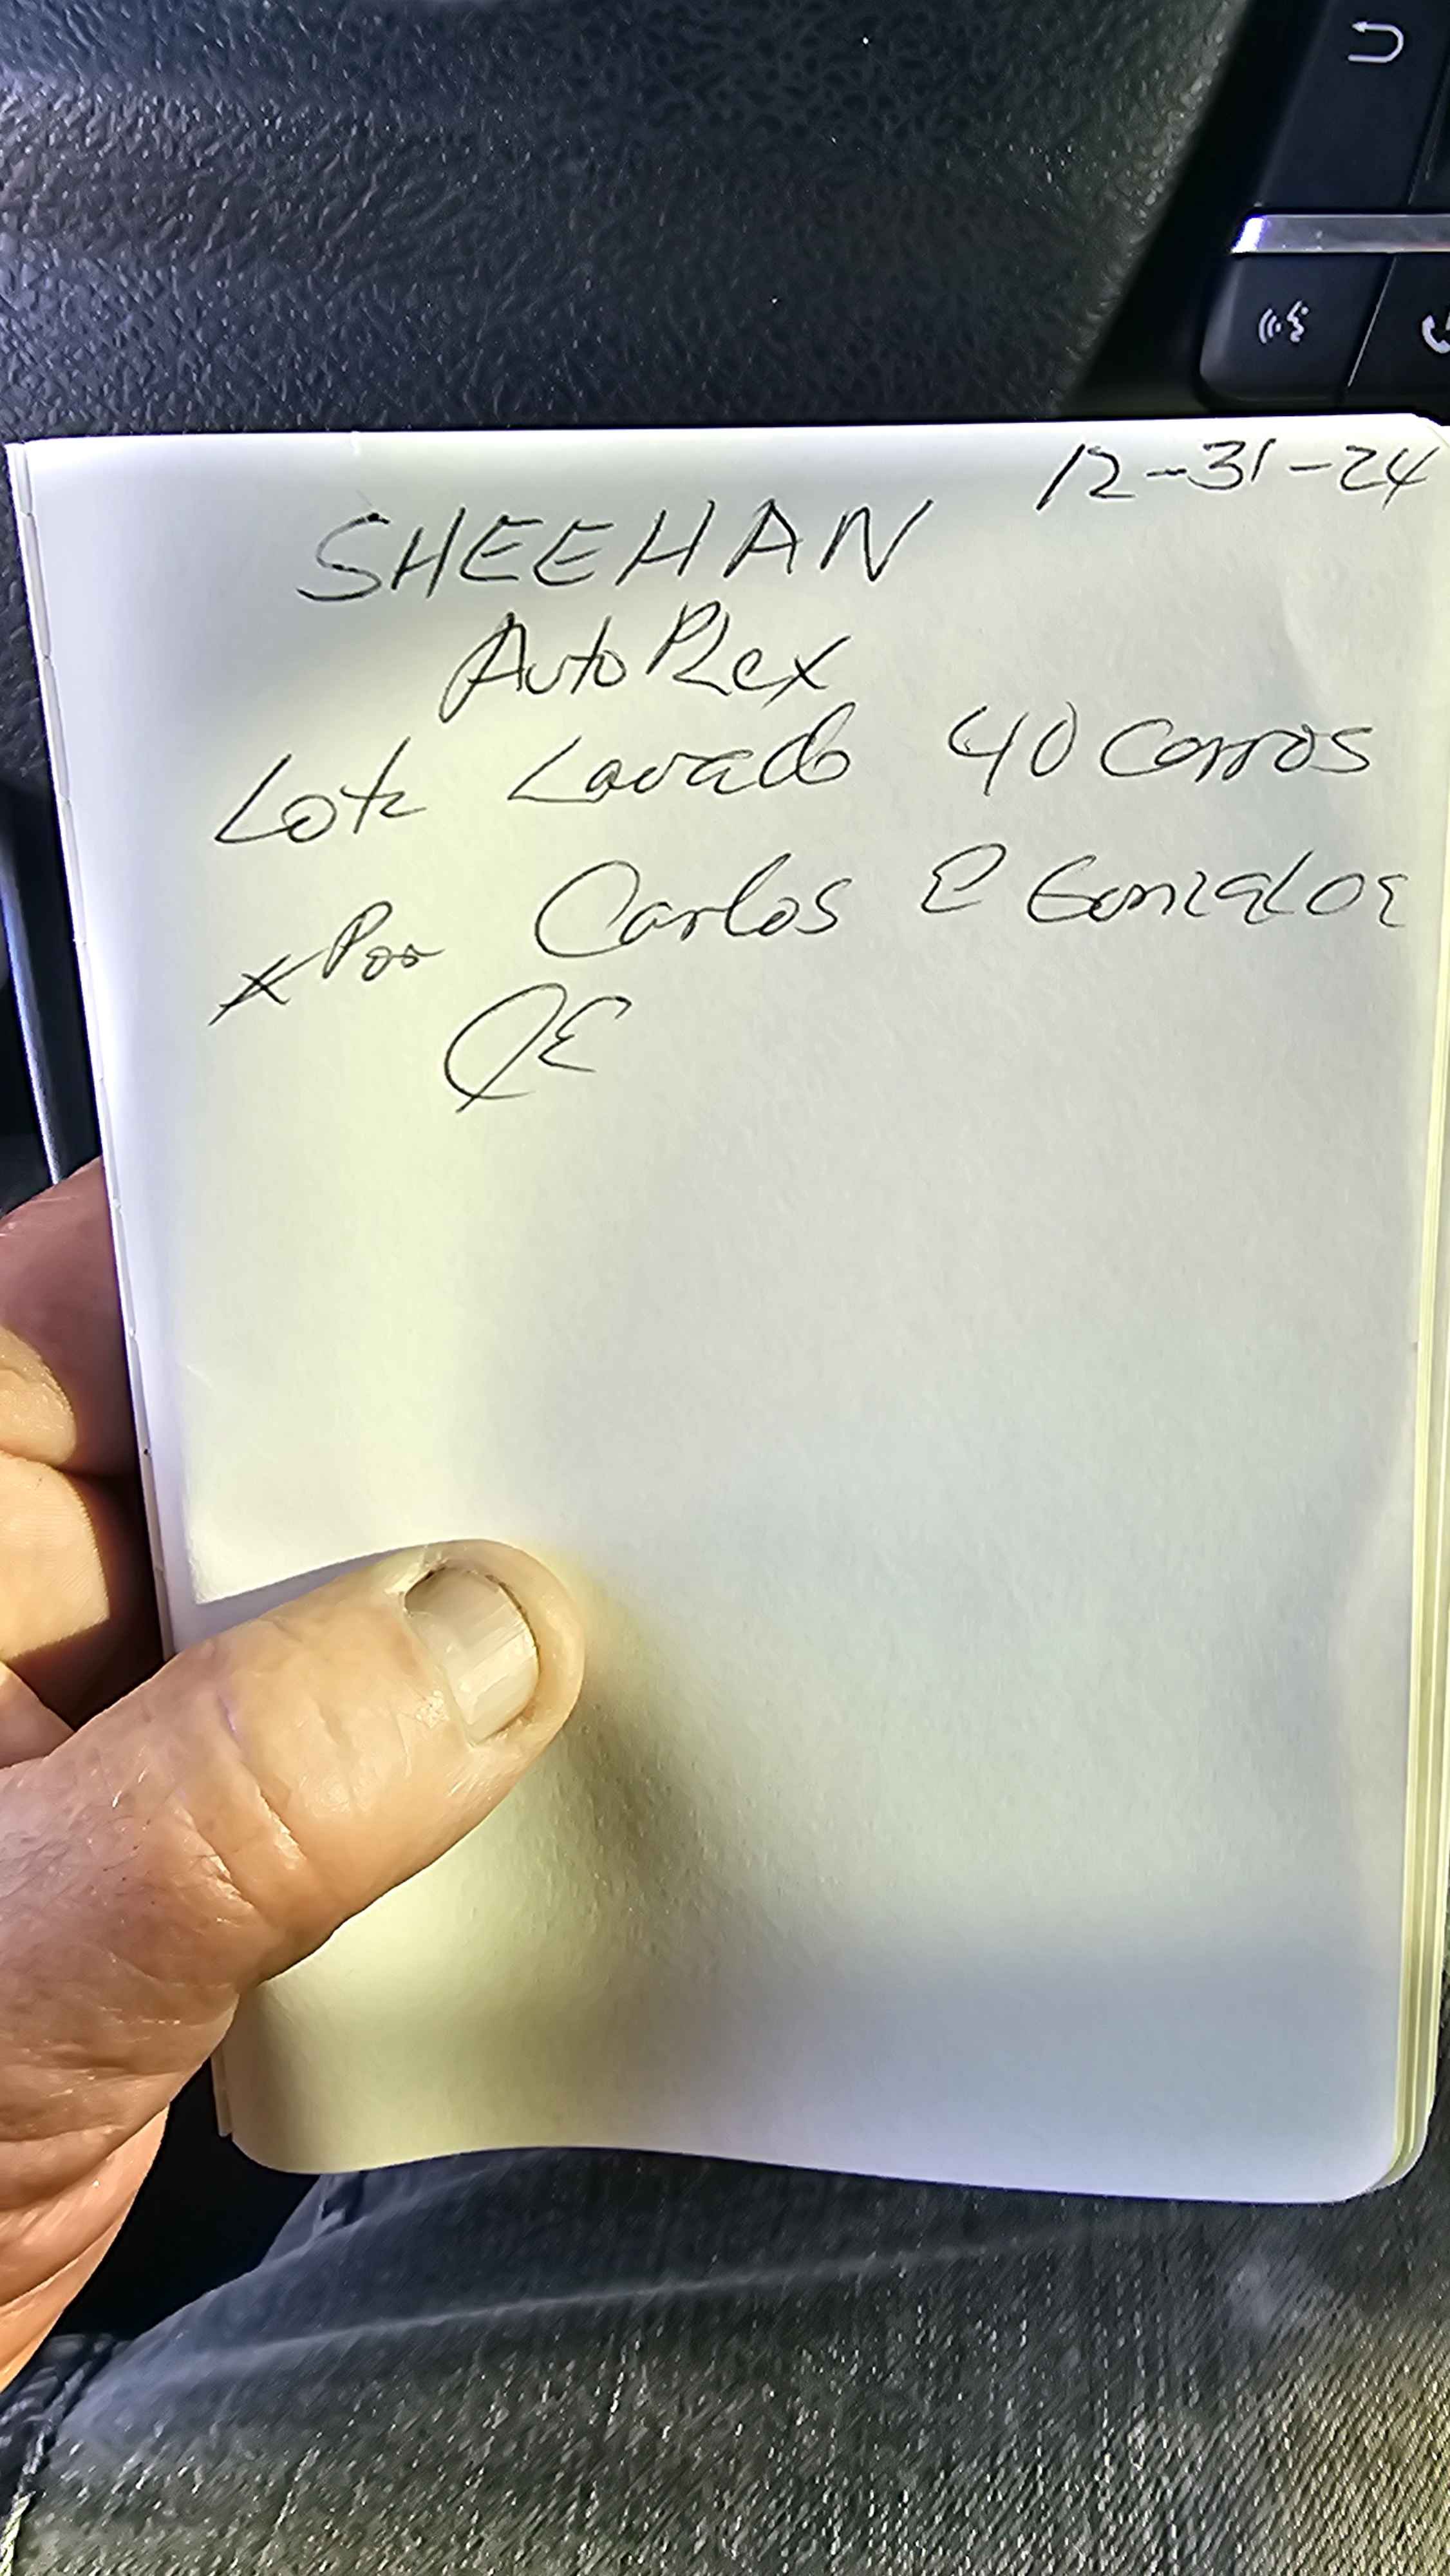 12-31-24
SHEEHAN
AutoPlex
Lote Lavado 40 Carros
*Por Carlos E Gonzalez
CE